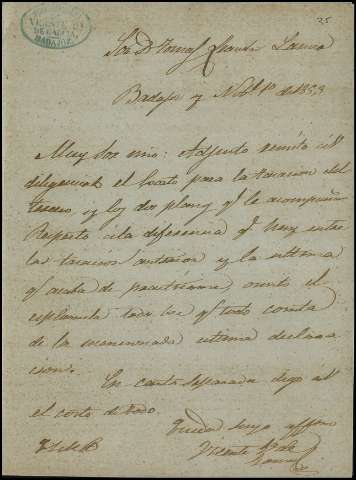 VICENTE B. DE
DE GARCIA,
BADAJOZ.
25
Sor Dn Tomas
Badajoz y Nobe 1º de 1853
Muy Sor mio: Adjunto remito á V
diligenciado el para la tasacion del
terreno y los dos planos qe le acompañan
Respecto á la diferencia qe hay entre
la tasacion anterior y la ultima
qe acaba de practicarse omito el
esplanarla toda vez qe todo consta
de la mencionada ultima declara
cion.
En carta separada digo á V
el costo de todo.
Queda suyo affmo
Vicente